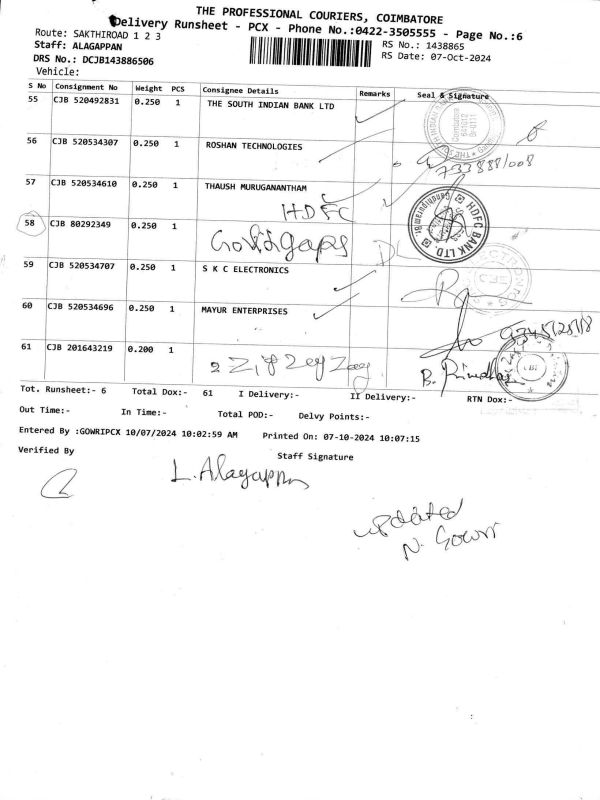 THE PROFESSIONAL COURIERS, COIMBATORE
Delivery Runsheet - PCX - Phone No.:0422-3505555 - Page No.:6
Route: SAKTHIROAD 1 2 3
RS No.: 1438865
Staff: ALAGAPPAN
RS Date: 07-Oct-2024
DRS No.: DCJB143886506
Vehicle:
S No Consignment No Weight PCS Consignee Details Remarks Seal & Signature
55 CJB 520492831 0.250 1 THE SOUTH INDIAN BANK LTD
56 CJB 520534307 0.250 1 ROSHAN TECHNOLOGIES
57 CJB 520534610 0.250 1 THAUSH MURUGANANTHAM
HDFC
58 CJB 80292349 0.250 1
HDFC BANK LTD.
59 CJB 520534707 0.250 1 S K C ELECTRONICS
60 CJB 520534696 0.250 1 MAYUR ENTERPRISES
61 CJB 201643219 0.200 1
Tot. Runsheet:- 6 Total Dox:- 61 I Delivery:- II Delivery:- RTN Dox:-
Out Time:- In Time:- Total POD:- Delvy Points:-
Entered By :GOWRIPCX 10/07/2024 10:02:59 AM Printed On: 07-10-2024 10:07:15
Verified By Staff Signature
L. Alagappn
updated
N. Gowri